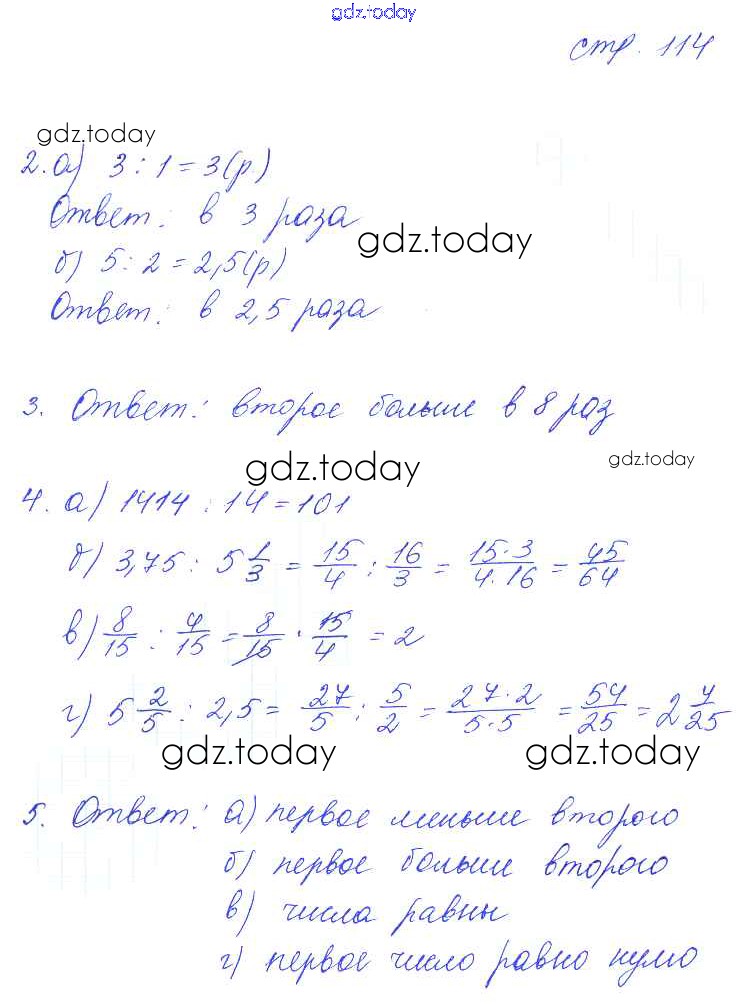 gdz.today
стр. 114
gdz.today
2. а) 3 : 1 = 3 (р.)
Ответ: в 3 раза
gdz.today
б) 5 : 2 = 2,5 (р)
Ответ: в 2,5 раза
3. Ответ: второе больше в 8 раз
gdz.today gdz.today
4. а) 1414 : 14 = 101
б) 3,75 : 5 1/3 = 15/4 : 16/3 = 15·3/4·16 = 45/64
в) 8/15 : 4/15 = 8/15 · 15/4 = 2
г) 5 2/5 : 2,5 = 27/5 : 5/2 = 27·2/5·5 = 54/25 = 2 4/25
gdz.today gdz.today
5. Ответ: а) первое меньше второго
б) первое больше второго
в) числа равны
г) первое число равно нулю